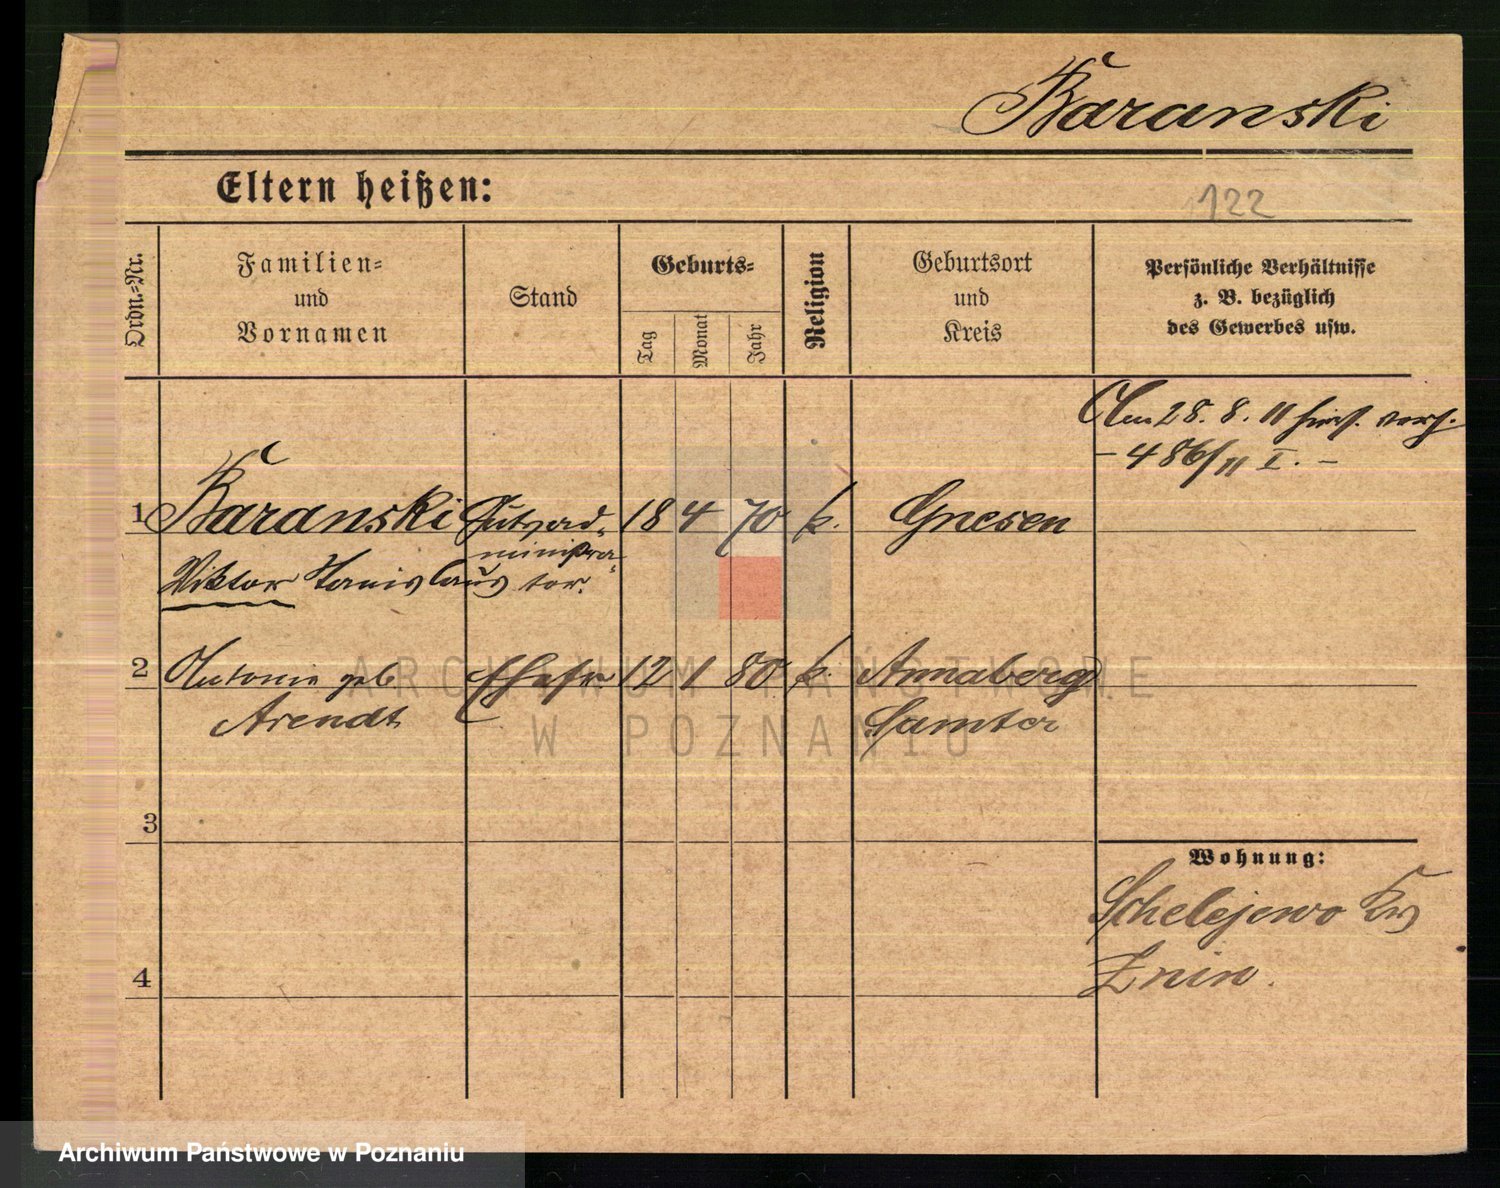 Baranski
Eltern heißen:
122
Ordn.-Nr.
Familien-
und
Vornamen
Stand
Geburts-
Tag
Monat
Jahr
Religion
Geburtsort
und
Kreis
Persönliche Verhältnisse
z. B. bezüglich
des Gewerbes usw.
Am 28. 8. 11
- 486/11 I. -
1 Baranski Gutsad- 18 4 70 k. Gnesen
ministra-
Viktor Stanislaus tor.
2 Antonie geb. Ehefr 12 1 80 k. Annaberg
Arendt Samter
3
Wohnung:
Schelejewo Krs
4 Znin.
ARCHIWUM PAŃSTWOWE
W POZNANIU
Archiwum Państwowe w Poznaniu